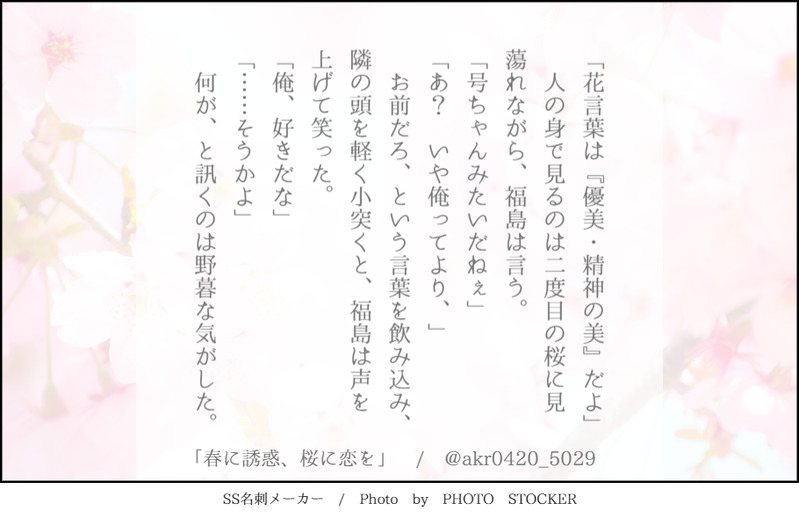 「花言葉は『優美・精神の美』だよ」
　人の身で見るのは二度目の桜に見
蕩れながら、福島は言う。
「号ちゃんみたいだねぇ」
「あ？　いや俺ってより、」
　お前だろ、という言葉を飲み込み、
隣の頭を軽く小突くと、福島は声を
上げて笑った。
「俺、好きだな」
「……そうかよ」
　何が、と訊くのは野暮な気がした。
「春に誘惑、桜に恋を」　/　@akr0420_5029
SS名刺メーカー　/　Photo　by　PHOTO　STOCKER